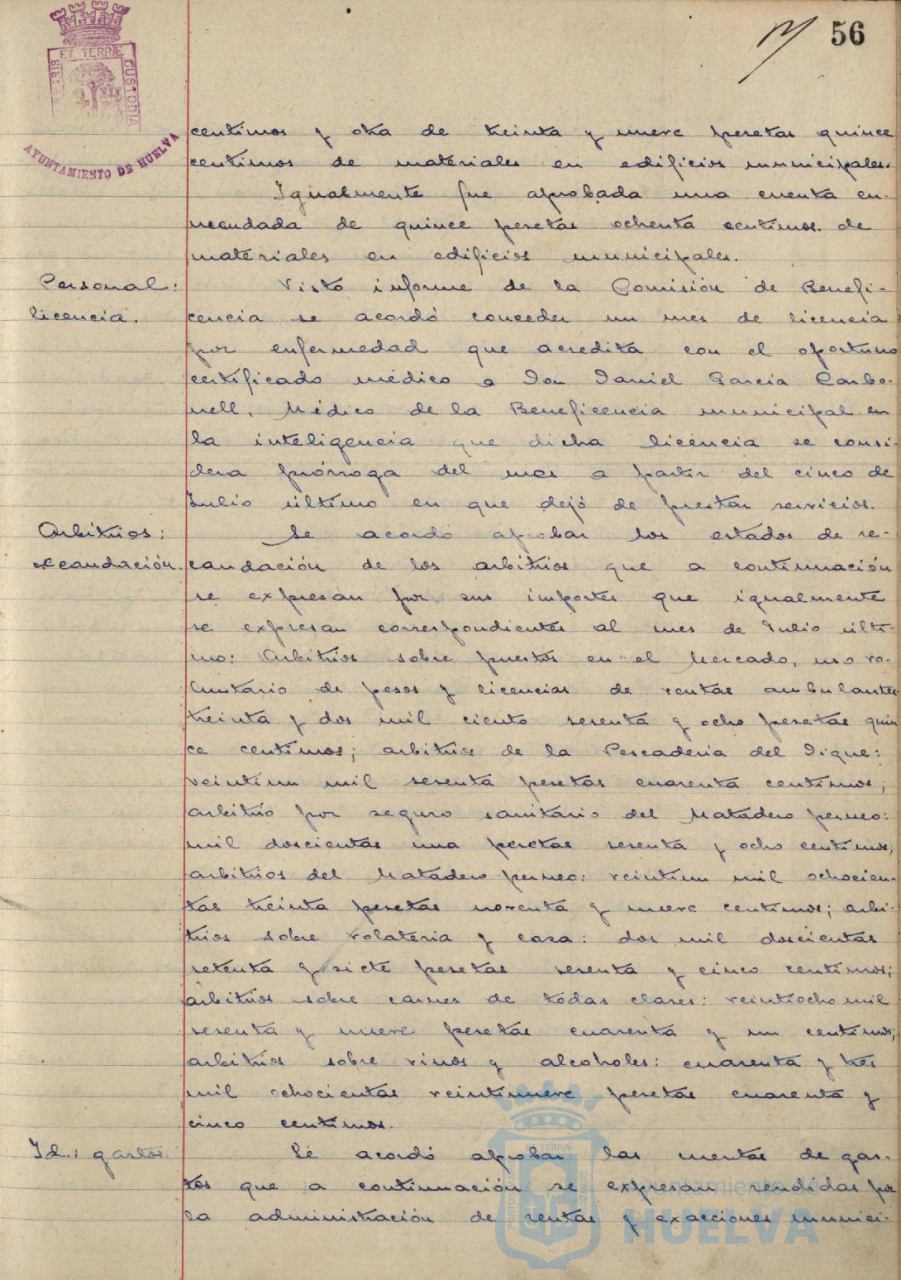 56
PORTUS MARIS ET TERRAE CUSTODIA
AYUNTAMIENTO DE HUELVA
centimos y otra de treinta y nueve pesetas quince
centimos de materiales en edificios municipales.
Igualmente fue aprobada una cuenta en-
mendada de quince pesetas ochenta centimos de
materiales en edificios municipales.
Personal:
licencia.
Visto informe de la Comisión de Benefi-
cencia se acordó conceder un mes de licencia
por enfermedad que acredita con el oportuno
certificado médico a Don Daniel Garcia Carbo-
nell, Médico de la Beneficencia municipal en
la inteligencia que dicha licencia se consi-
dera prórroga del mes a partir del cinco de
Julio último en que dejó de prestar servicios.
Arbitrios:
recaudación.
Se acordó aprobar los estados de re-
caudación de los arbitrios que a continuación
se expresan por sus importes que igualmente
se expresan correspondientes al mes de Julio últi-
mo: Arbitrios sobre puestos en el Mercado, uso vo-
luntario de pesos y licencias de ventas ambulantes
treinta y dos mil ciento sesenta y ocho pesetas quin
ce centimos; arbitrios de la Pescaderia del Dique:
veintiun mil sesenta pesetas cuarenta centimos;
arbitrio por seguro sanitario del Matadero porcino:
mil doscientas una pesetas sesenta y ocho centimos;
arbitrios del Matadero porcino: veintiun mil ochocien-
tas treinta pesetas noventa y nueve centimos; arbi-
trios sobre volateria y caza: dos mil doscientas
setenta y siete pesetas sesenta y cinco centimos;
arbitrios sobre carnes de todas clases: veintiocho mil
sesenta y nueve pesetas cuarenta y un centimos;
arbitrios sobre vinos y alcoholes: cuarenta y tres
mil ochocientas veintinueve pesetas cuarenta y
cinco centimos.
Id.: gastos.
Se acordó aprobar las cuentas de gas-
tos que a continuación se expresan rendidas por
la administración de rentas y exacciones munici-
Ayuntamiento de
HUELVA